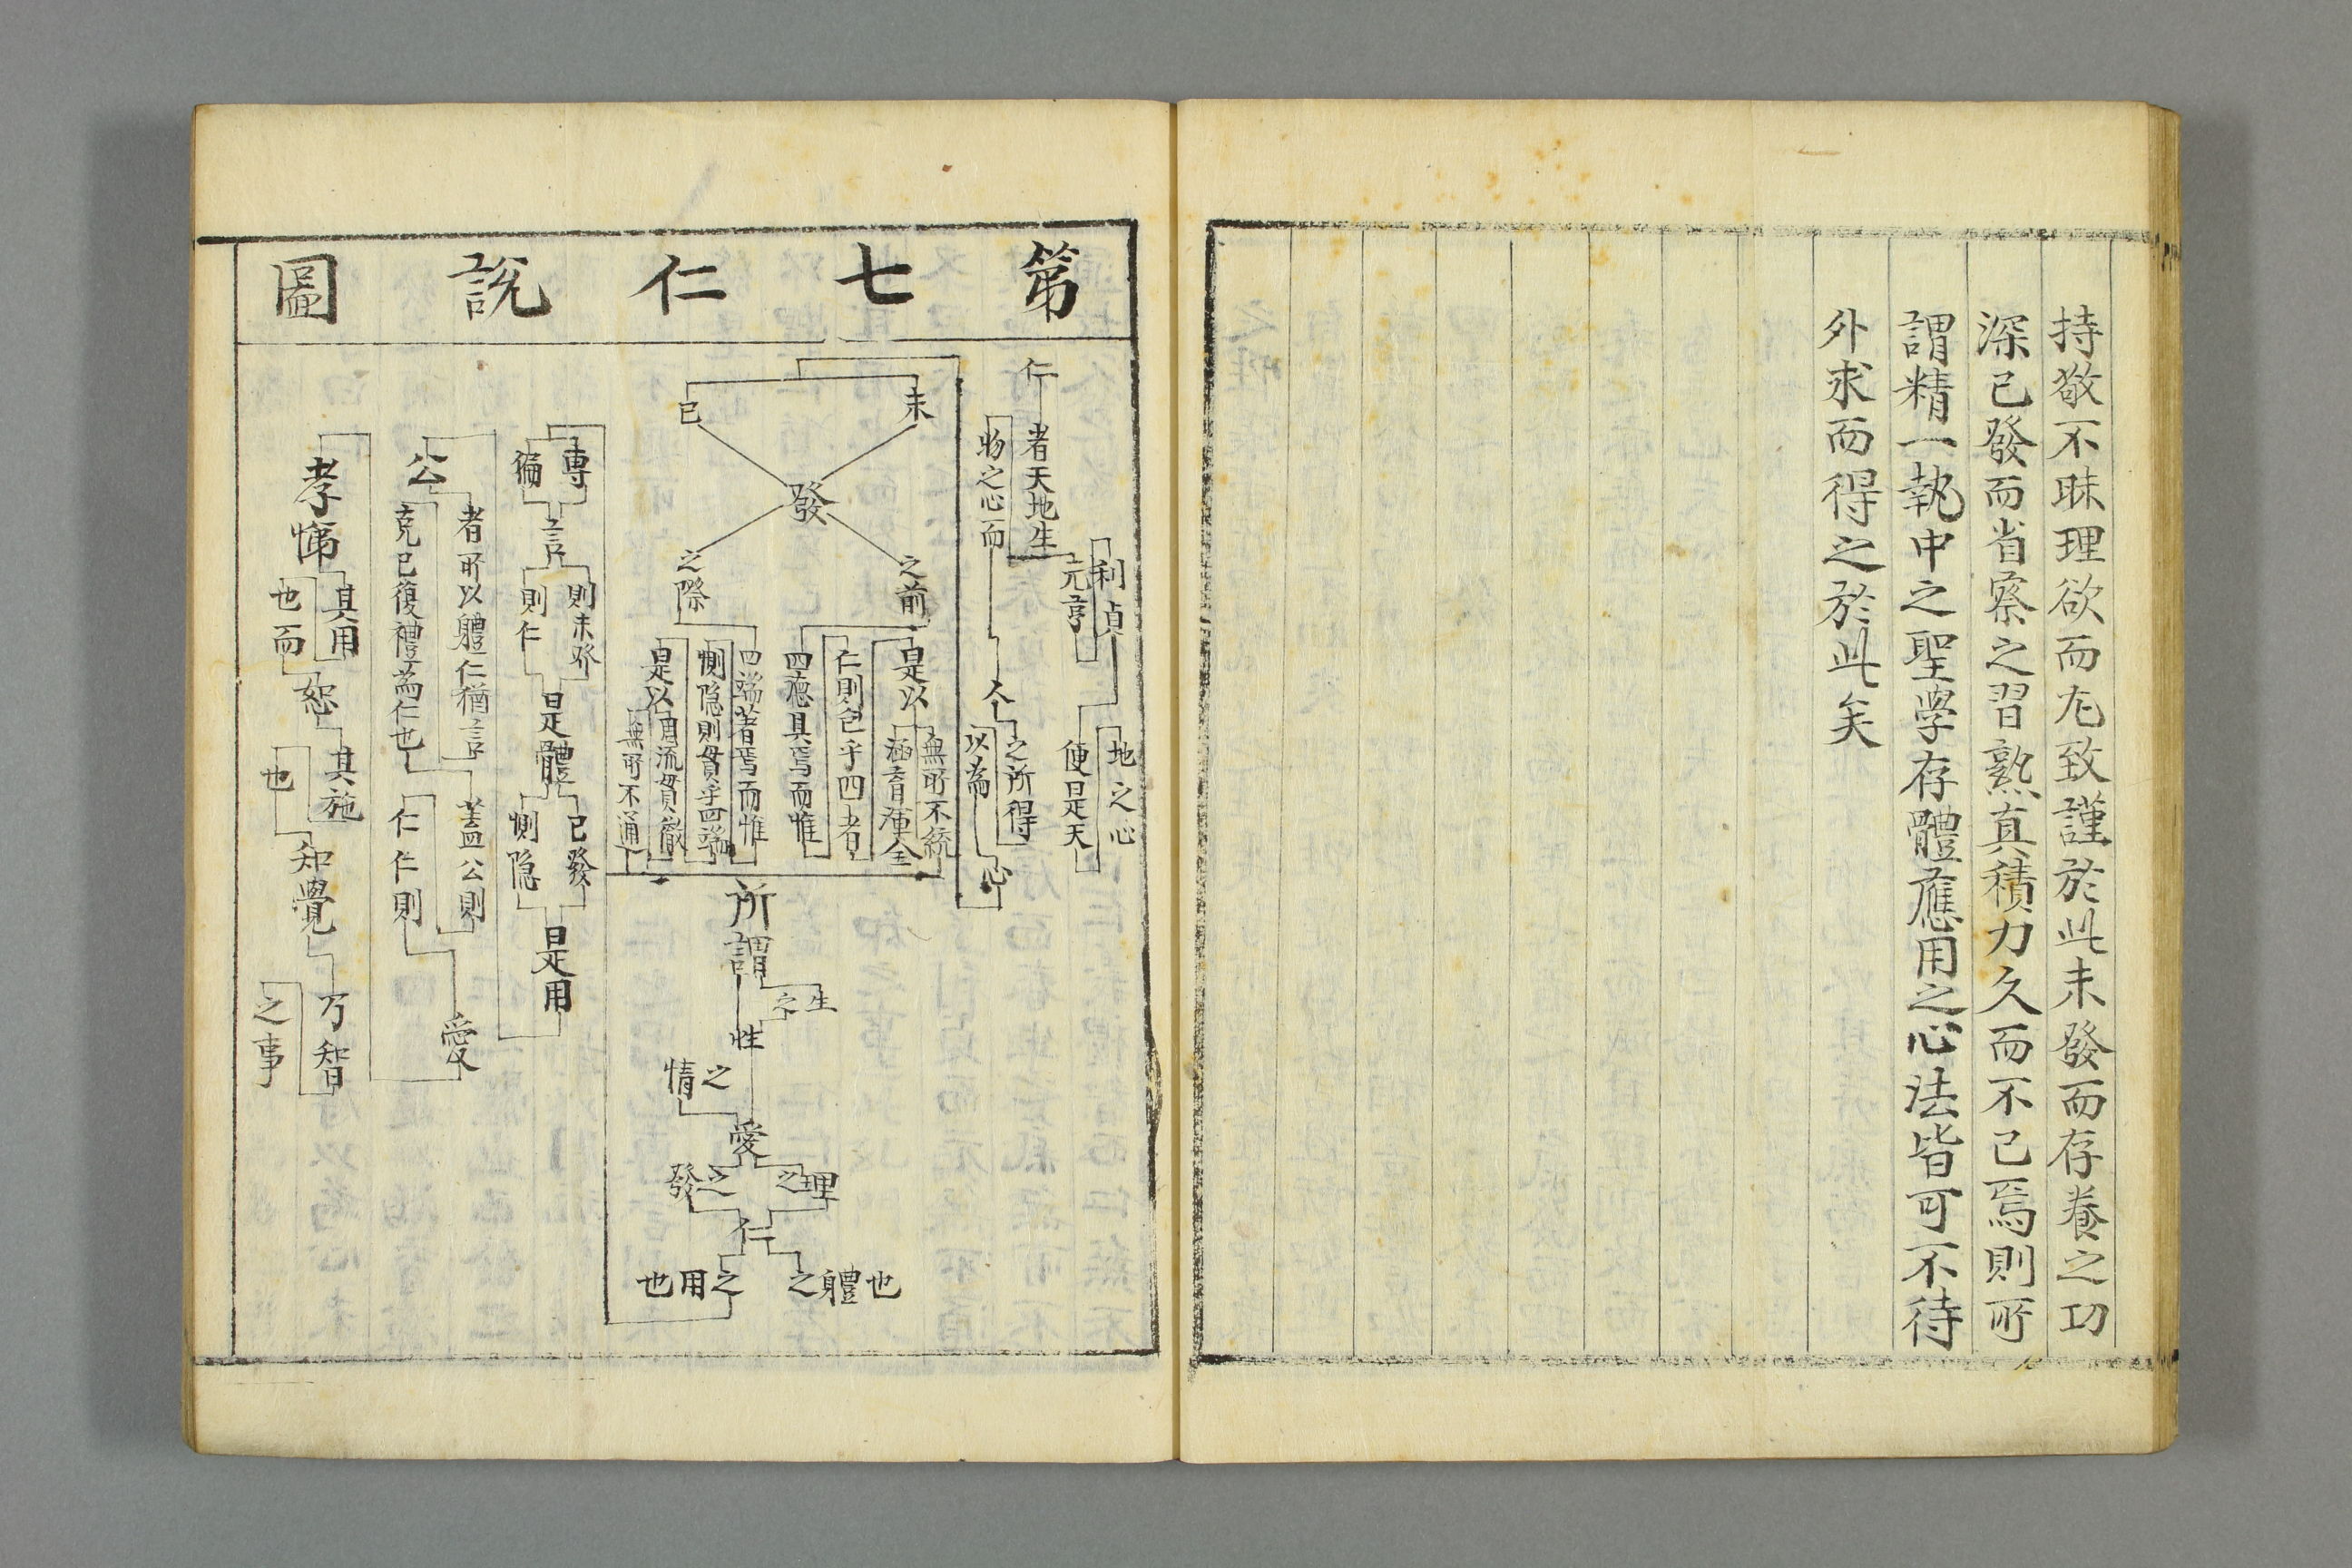 持敬不昧理欲而尤致謹於此未發而存養之功
深已發而省察之習熟真積力久而不已焉則所
謂精一執中之聖學存體應用之心法皆可不待
外求而得之於此矣
第七仁說圖
仁
者天地生
物之心而
元亨
利貞
地之心
便是天
人
之所得
以爲
心
未
已
發
之前
之際
是以
無所不統
涵育渾全
仁則包乎四者
四德具焉而惟
四端著焉而惟
惻隱則貫乎四端
是以
周流貫徹
無所不通
所謂
生之
性
之情
愛
之理
之發
仁
之體也
之用也
專
偏
言
則未發
則仁
是體
已發
惻隱
是用
公
者所以體仁猶言
克己復禮爲仁也
蓋公則
仁仁則
愛
孝悌
其用
也而
恕
其施
也
知覺
乃智
之事